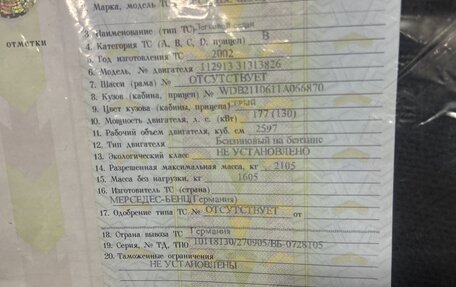 Марка, модель ТС
отметки
3. Наименование (тип ТС) Легковой седан
4. Категория ТС (А, В, С, D, прицеп) В
5. Год изготовления ТС 2002
6. Модель, № двигателя 112913 31313826
7. Шасси (рама) № ОТСУТСТВУЕТ
8. Кузов (кабина, прицеп) № WDB2110611A056870
9. Цвет кузова (кабины, прицепа) Серый
10. Мощность двигателя, л. с. (кВт) 177 (130)
11. Рабочий объем двигателя, куб. см 2597
12. Тип двигателя Бензиновый на бензине
13. Экологический класс НЕ УСТАНОВЛЕНО
14. Разрешенная максимальная масса, кг 2105
15. Масса без нагрузки, кг 1605
16. Изготовитель ТС (страна)
МЕРСЕДЕС-БЕНЦ(Германия)
17. Одобрение типа ТС № ОТСУТСТВУЕТ от
18. Страна вывоза ТС Германия
19. Серия, № ТД, ТПО 10118130/270905/ВБ-0728105
20. Таможенные ограничения
НЕ УСТАНОВЛЕНЫ